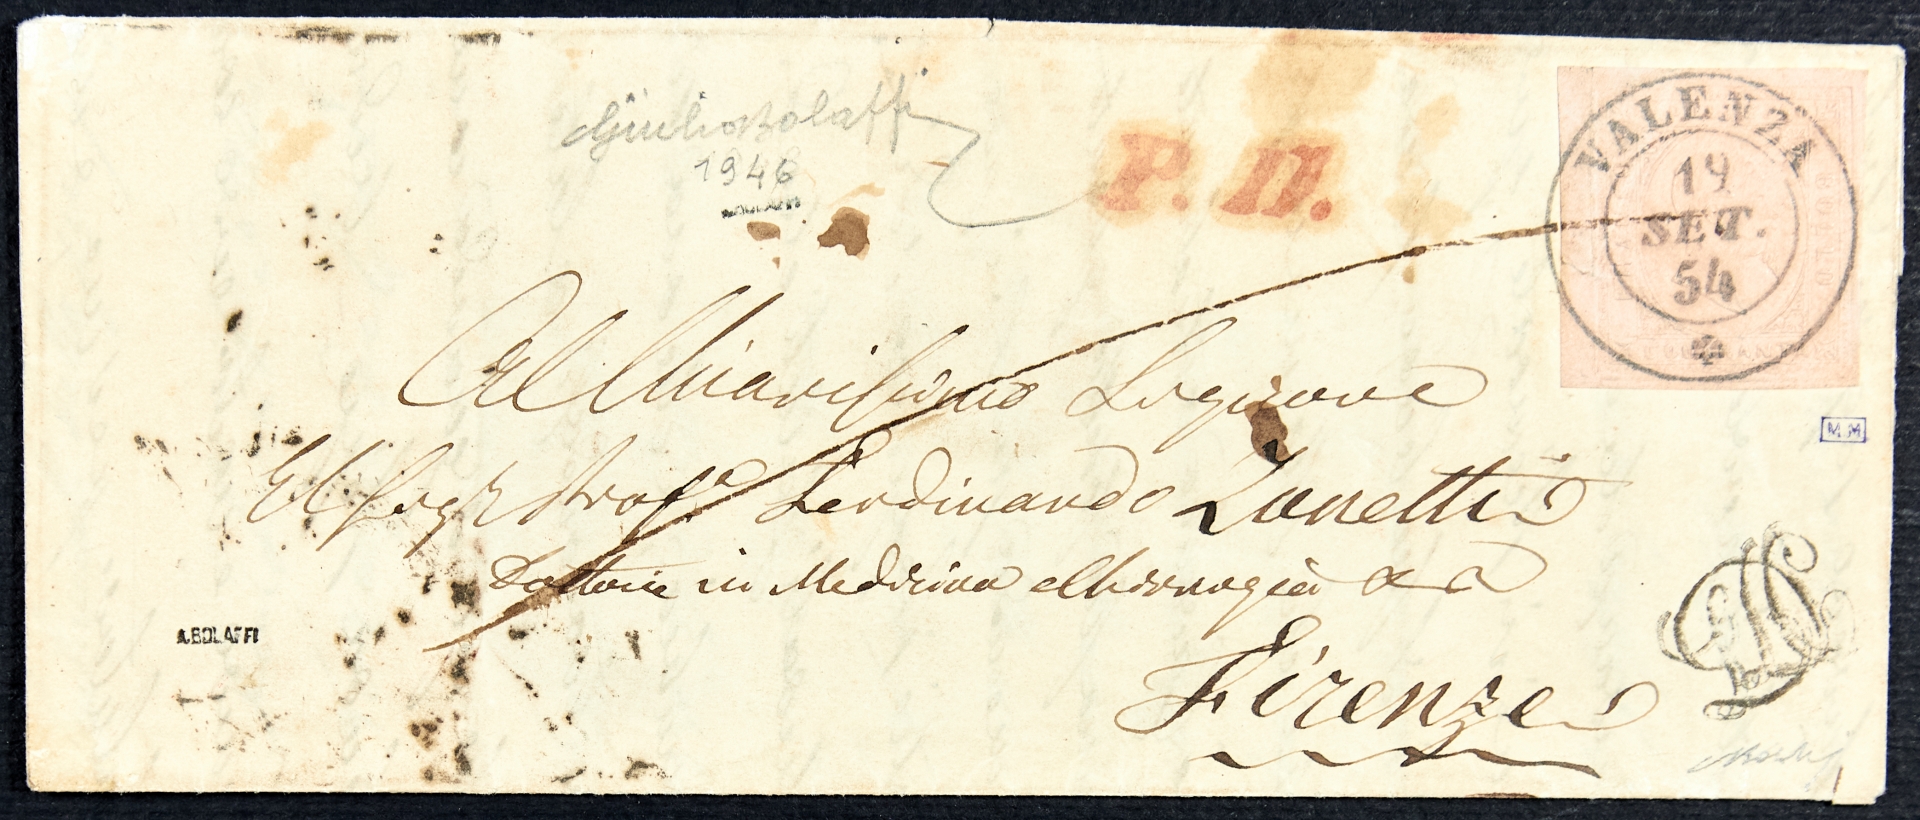 Giulio Bolaffi
1946
P. D.
VALENZA
19
SET.
54
Al Chiarissimo Signore
Il Sigr Profe Ferdinando Zanetti
Dottore in Medicina e Chirurgia
Firenze
A.BOLAFFI
M.M